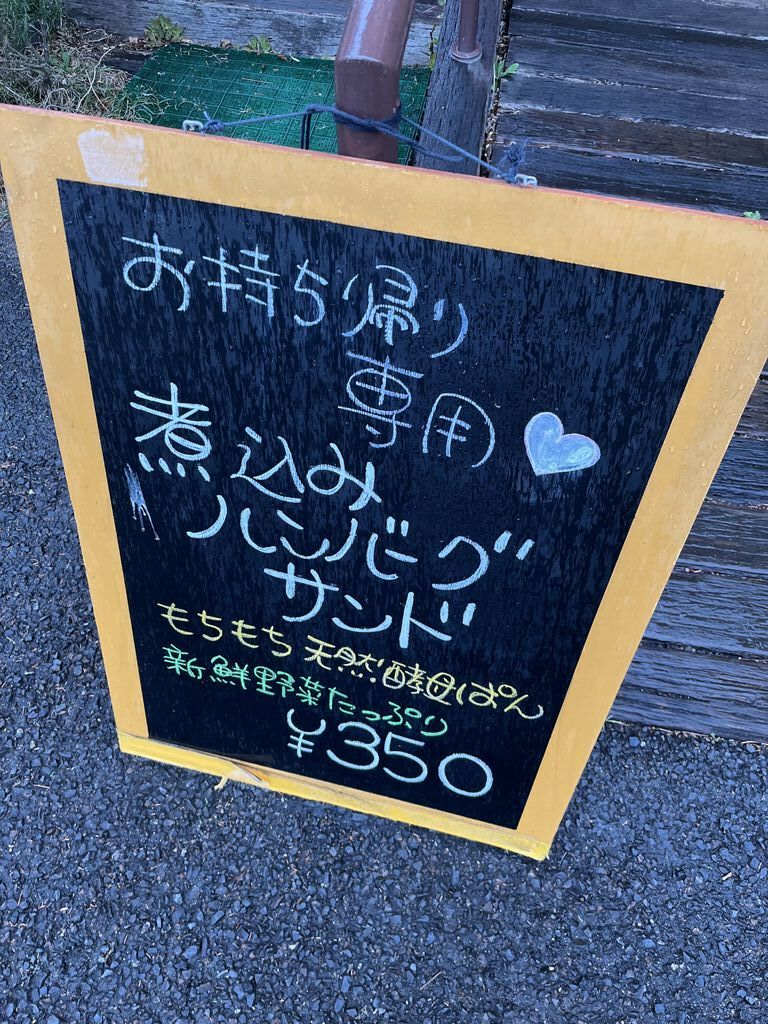 お持ち帰り
専用
煮込み
ハンバーグ
サンド
もちもち 天然酵母ぱん
新鮮野菜たっぷり
¥350